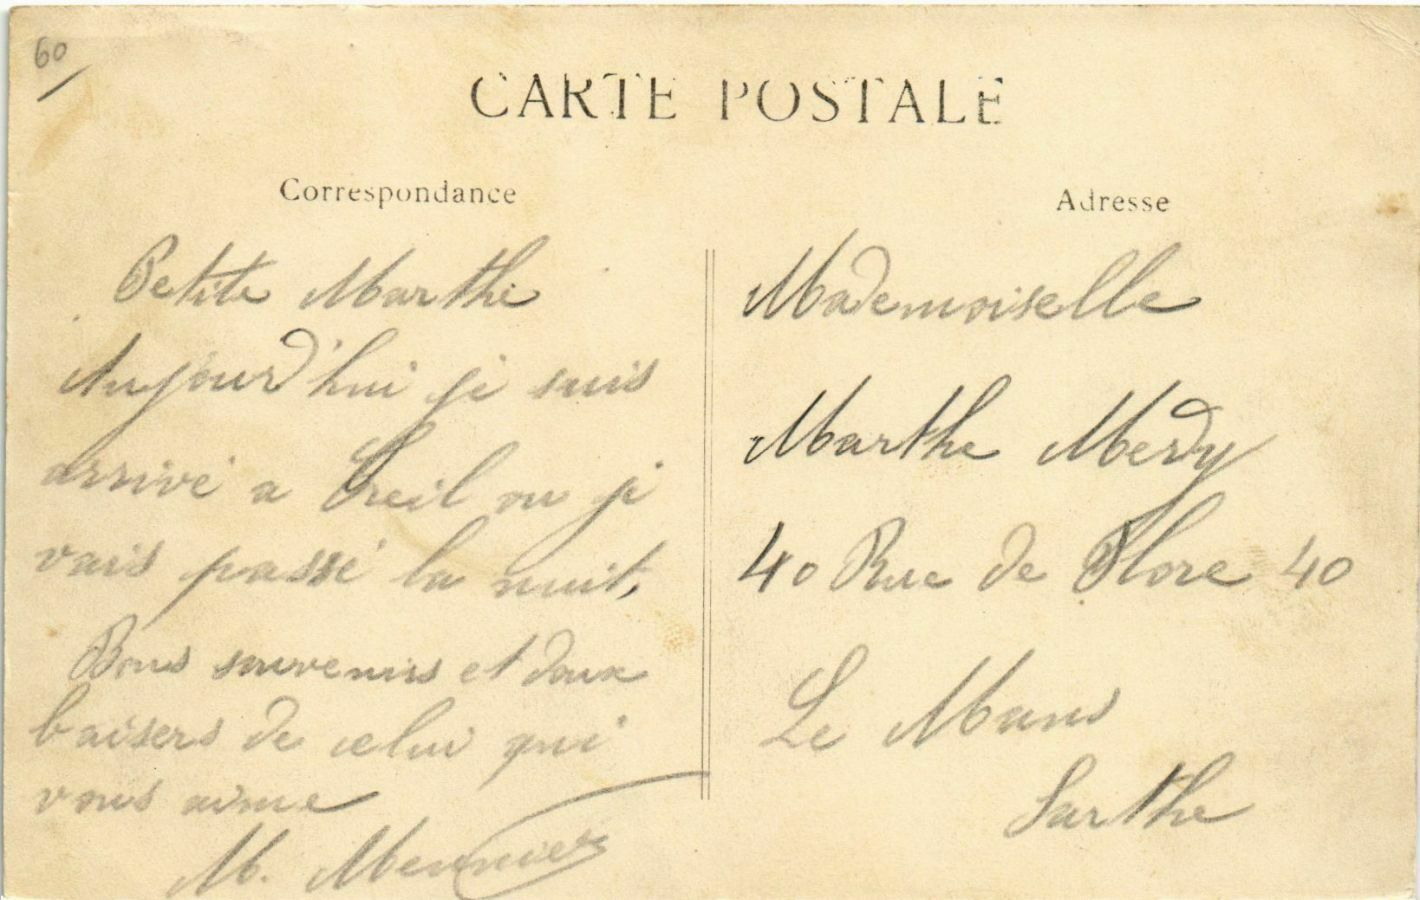 60
CARTE POSTALE
Correspondance
Petite Marthe
Aujourd'hui je suis
arrivé a Creil ou je
vais passé la nuit,
Bons souvenirs et doux
baisers de celui qui
vous aime
M. Meunier
Adresse
Mademoiselle
Marthe Merdy
40 Rue de Flore 40
Le Mans
Sarthe